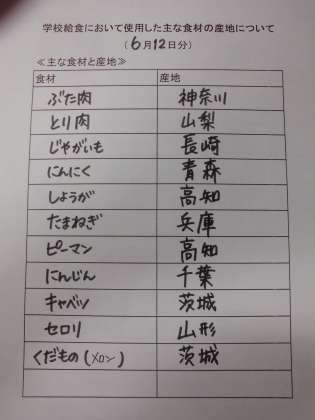 学校給食において使用した主な食材の産地について
(6月12日分)
≪主な食材と産地≫
食材 産地
ぶた肉 神奈川
とり肉 山梨
じゃがいも 長崎
にんにく 青森
しょうが 高知
たまねぎ 兵庫
ピーマン 高知
にんじん 千葉
キャベツ 茨城
セロリ 山形
くだもの(メロン) 茨城